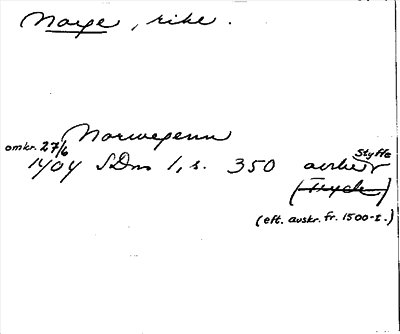 Norge, rike.
Norwegenn
omkr. 27/6 Styffe
1404 SDns 1, s. 350 avskr
(Tryck)
(eft. avskr. fr. 1500-t.)